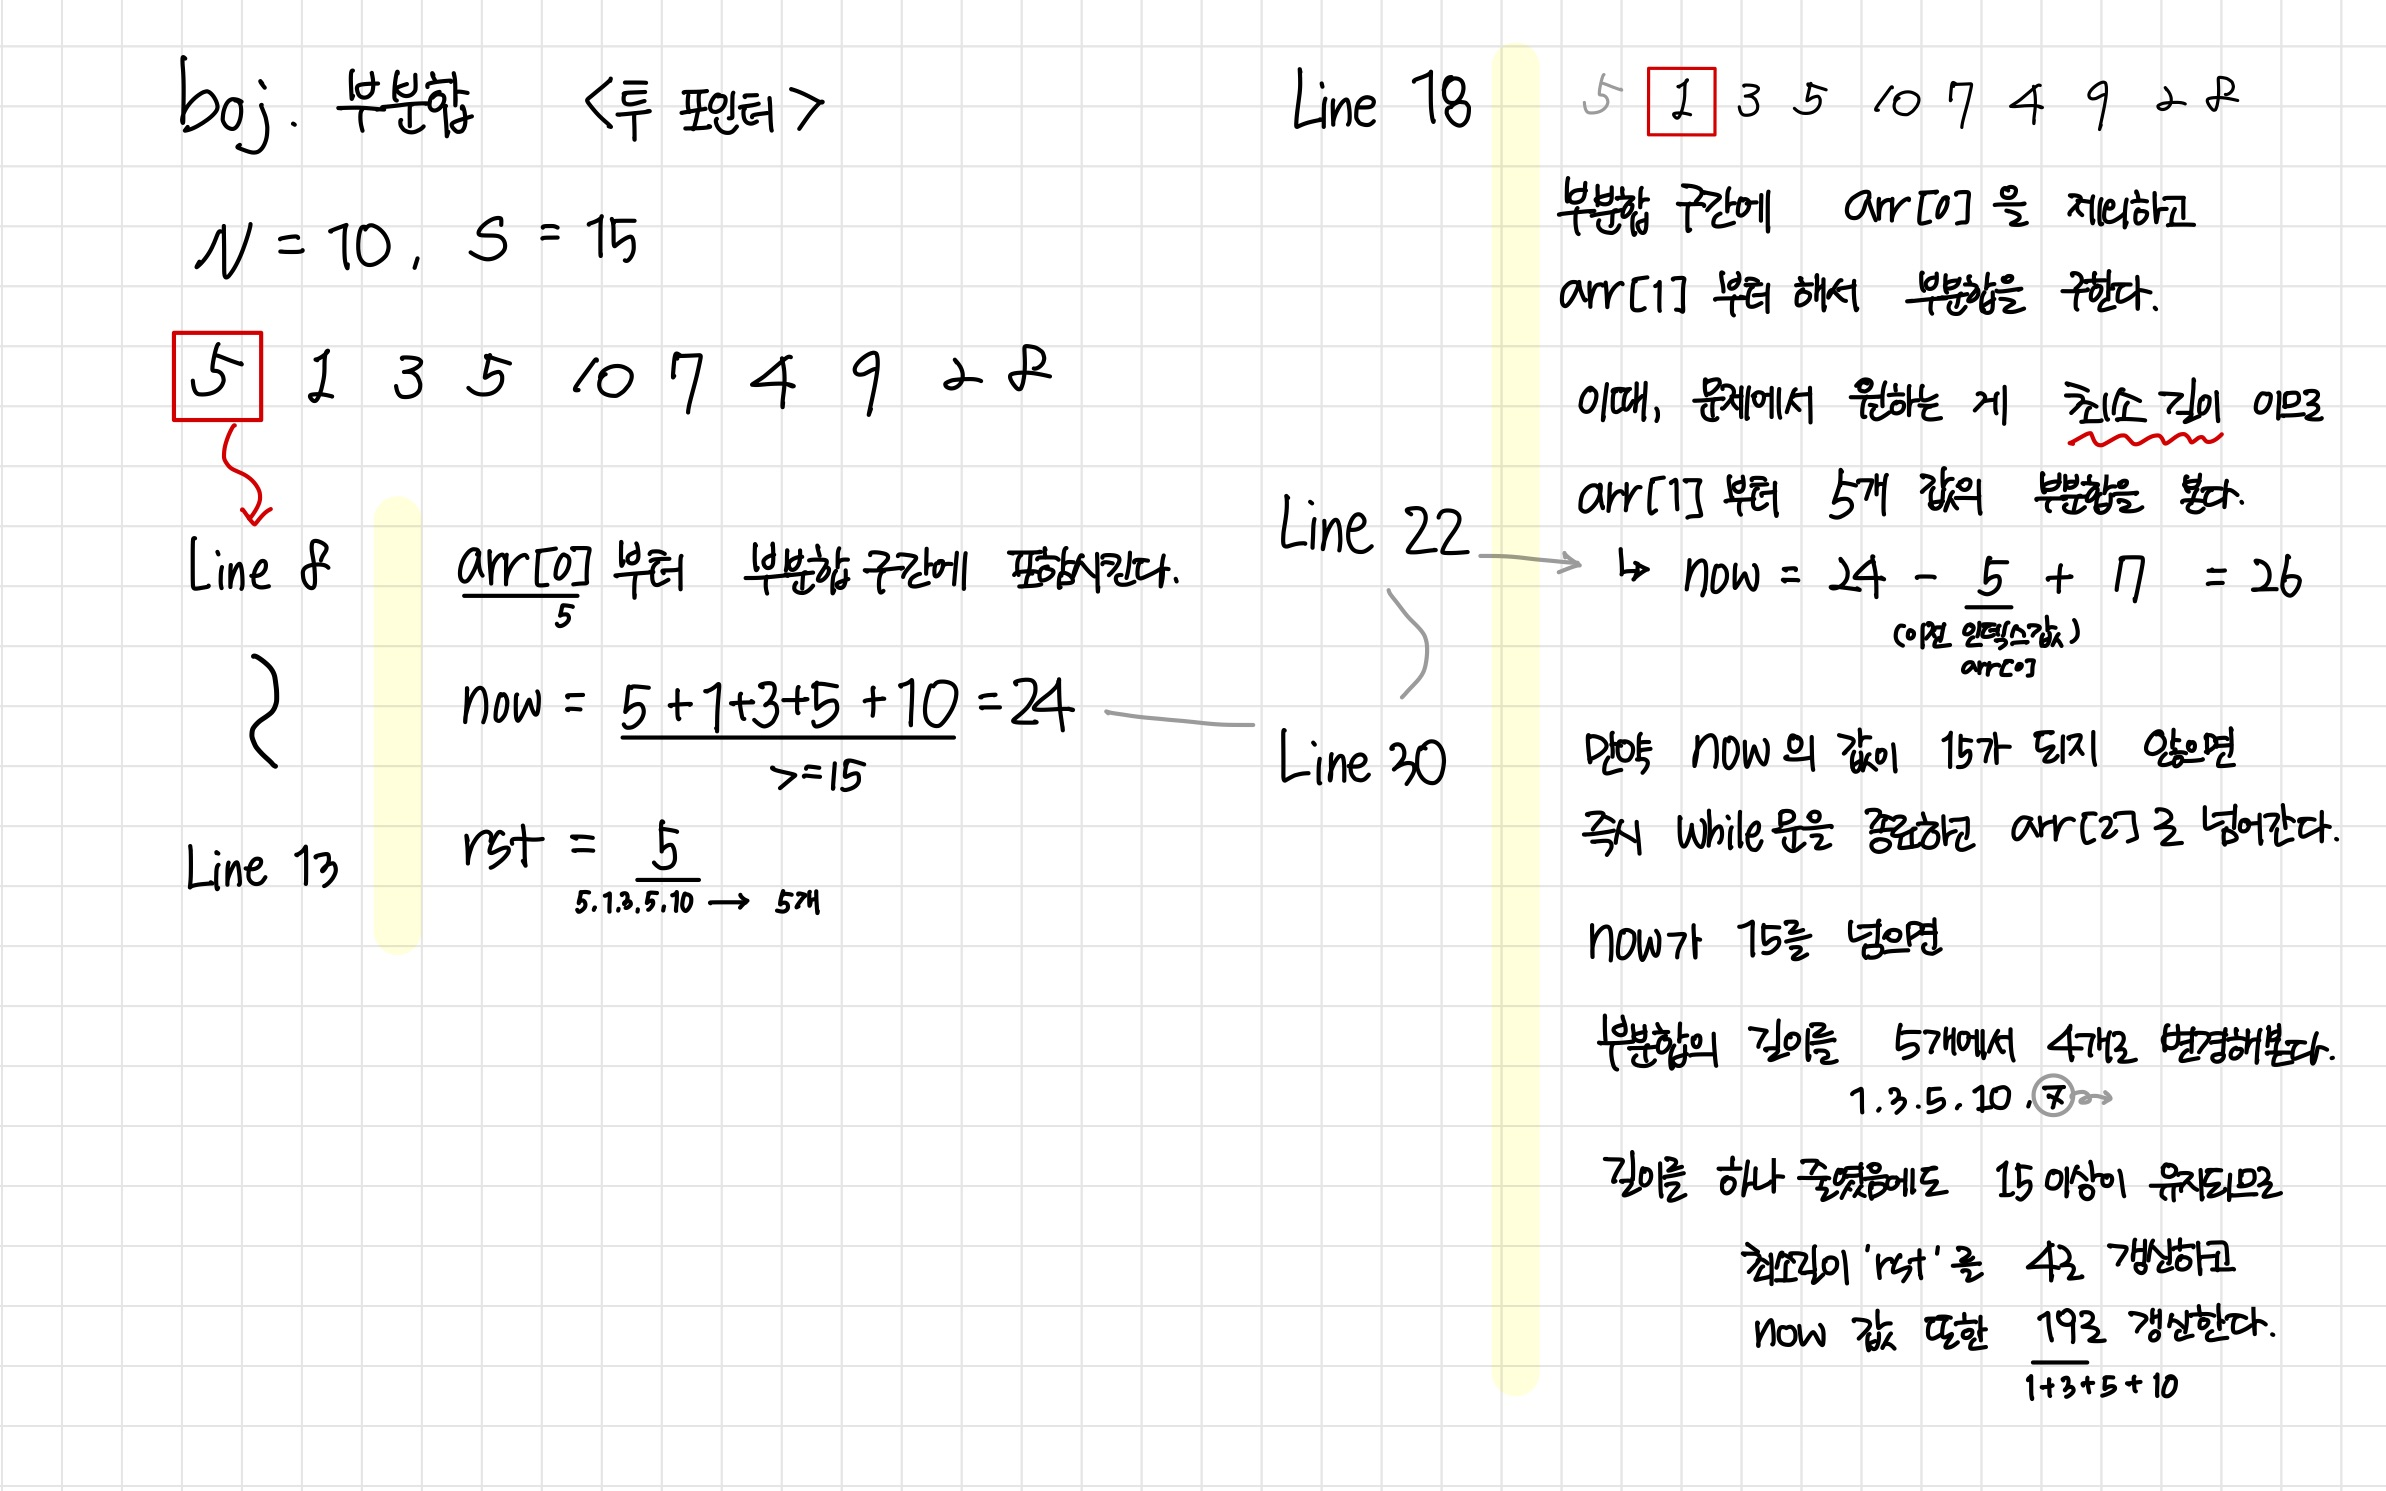 boj. 부분합 <투 포인터>
N = 10, S = 15
5 1 3 5 10 7 4 9 2 8
Line 8
arr[0] 부터 부분합 구간에 포함시킨다.
5
now = 5+1+3+5+10 = 24
>=15
Line 13
rst = 5
5.1.3.5.10 → 5개
Line 18
5 1 3 5 10 7 4 9 2 8
부분합 구간에 arr[0] 을 제외하고
arr[1] 부터 해서 부분합을 구한다.
이때, 문제에서 원하는 게 최소 길이 이므로
arr[1] 부터 5개 값의 부분합을 본다.
Line 22
↳ now = 24 - 5 + 7 = 26
(이전 인덱스값)
arr[0]
Line 30
만약 now의 값이 15가 되지 않으면
즉시 while문을 종료하고 arr[2]로 넘어간다.
now가 15를 넘으면
부분합의 길이를 5개에서 4개로 변경해본다.
1.3.5.10.7
길이를 하나 줄였음에도 15이상이 유지되므로
최소길이 'rst'를 4로 갱신하고
now 값 또한 19로 갱신한다.
1+3+5+10